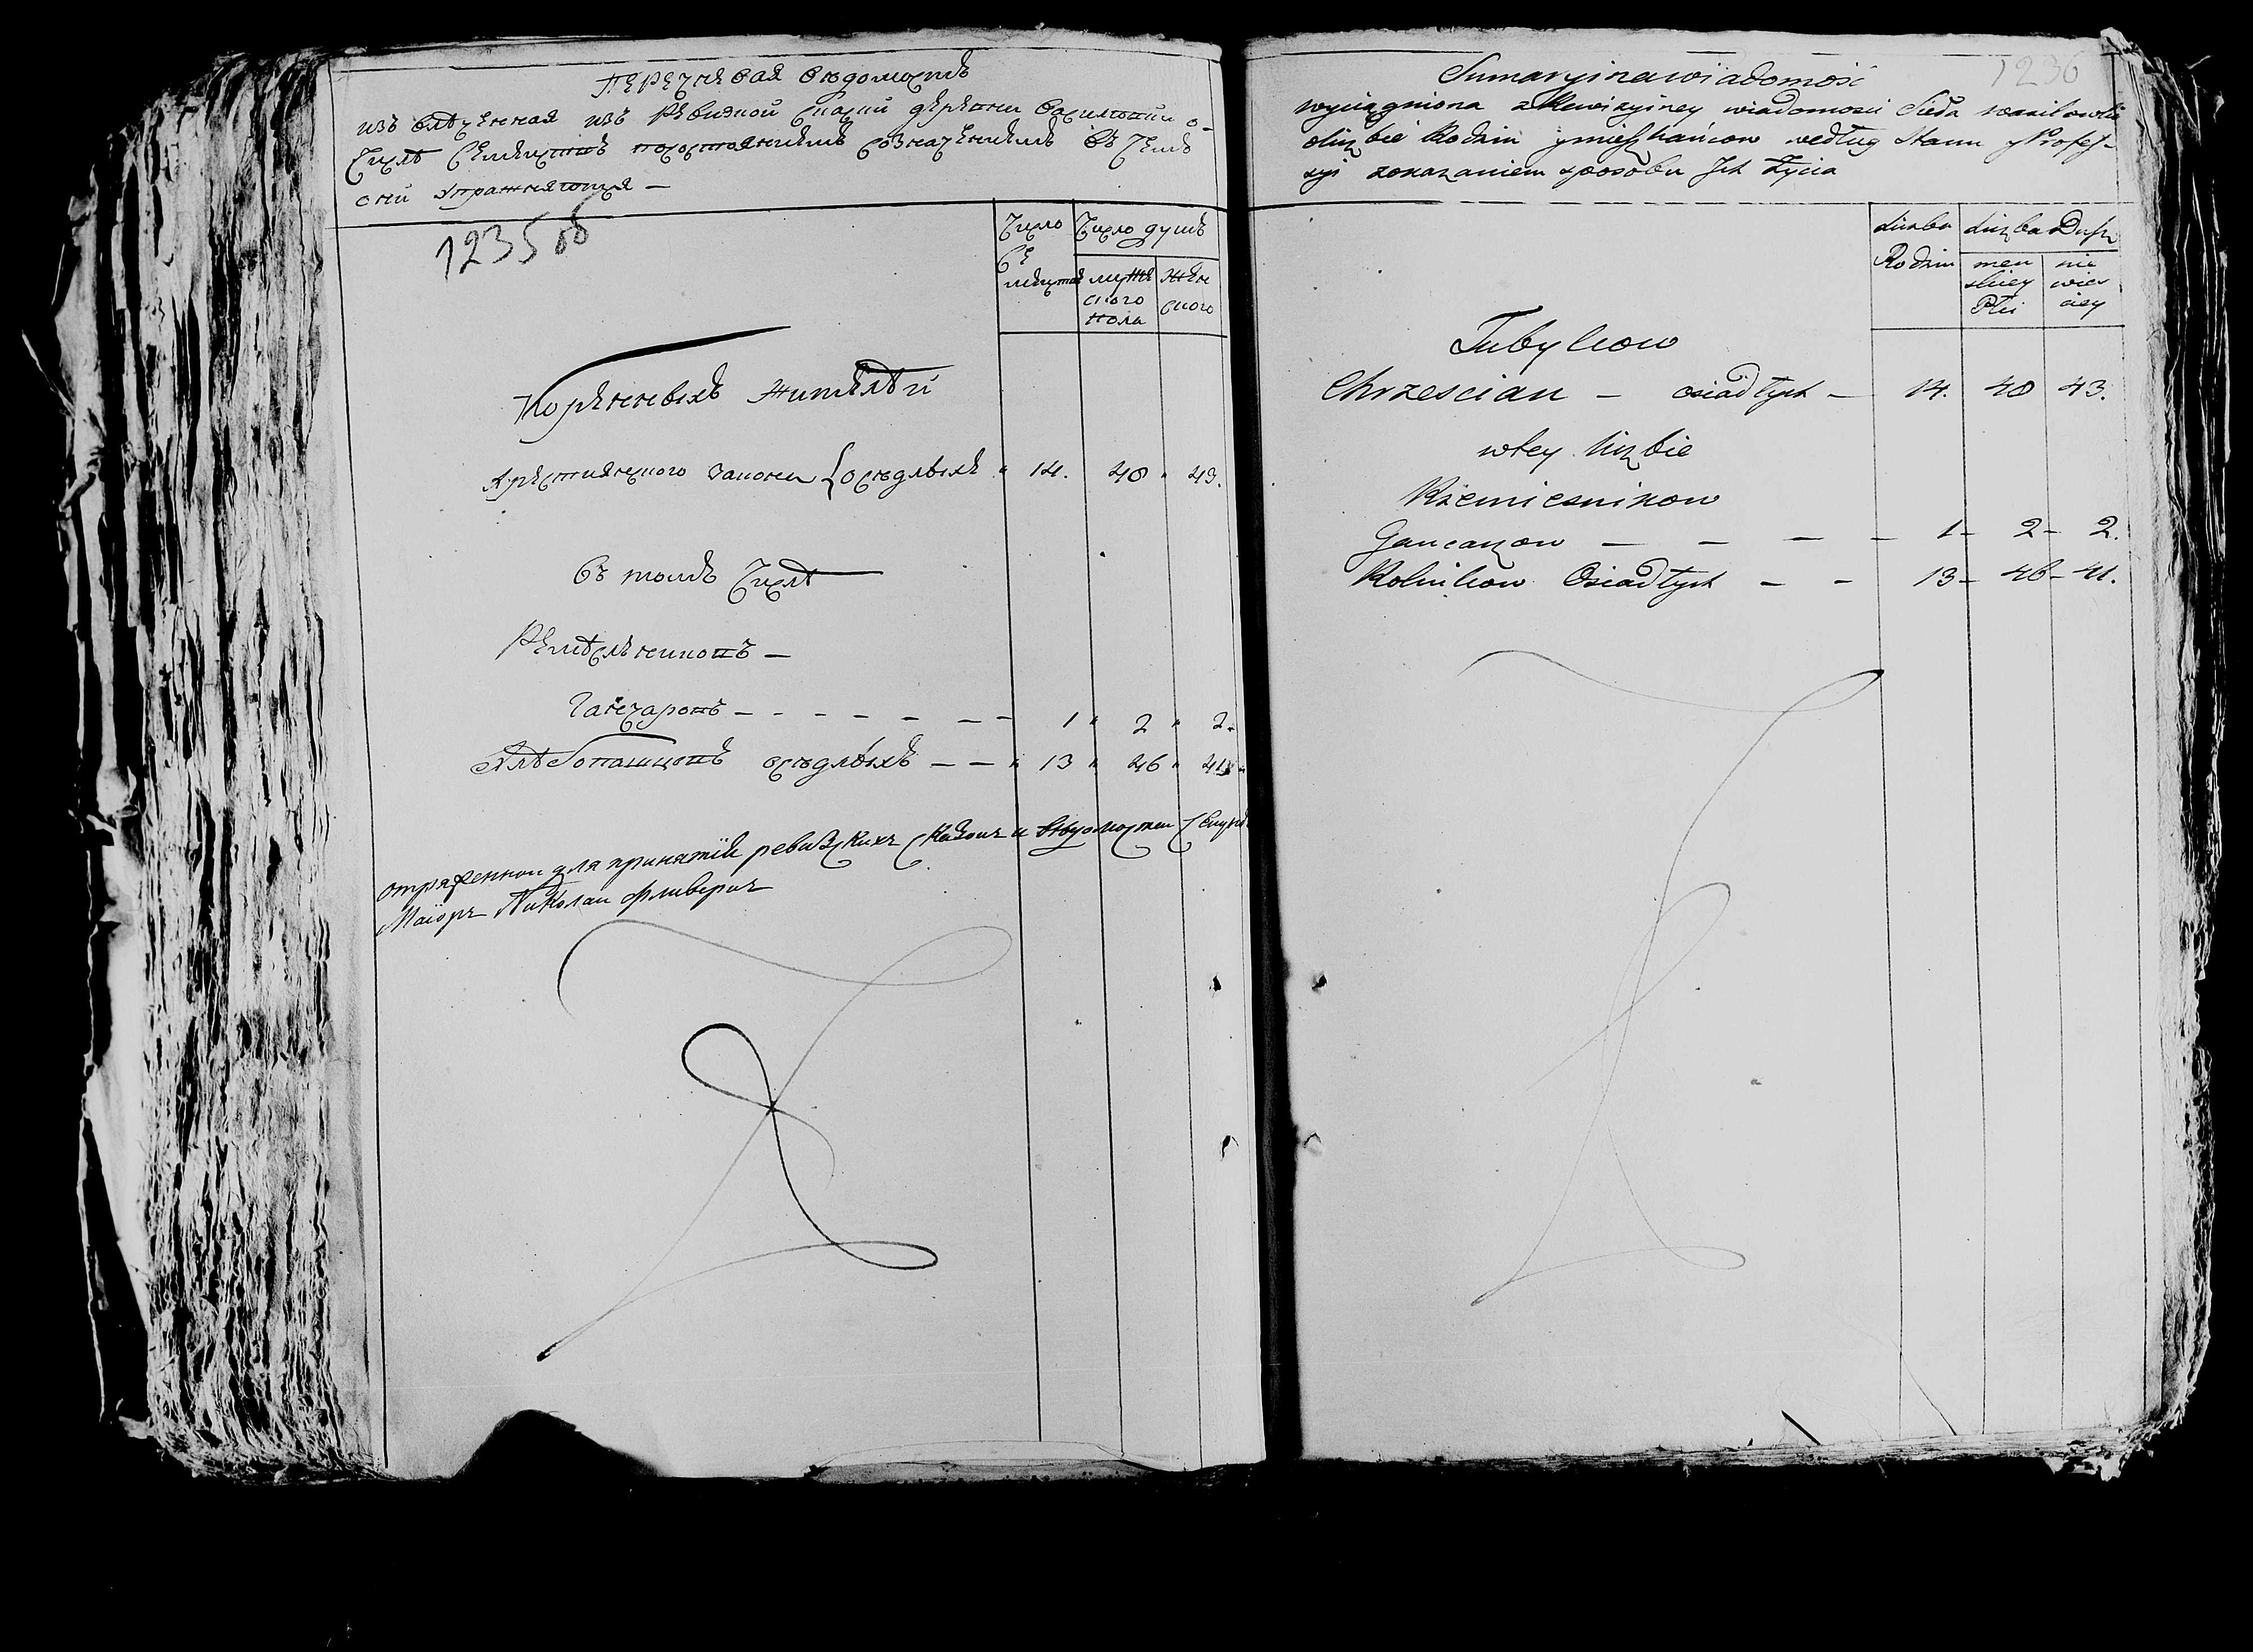 Перечневая вѣдомость
извлѣченная изъ Ревизкой скаски деревни Василювки о
числѣ семействъ по состояниемъ созначениемъ въ чемъ
они упражняютця —
1235 об
Число се мействъ
Число душъ
мужескаго пола
женскаго
Коренныхъ жителѣй
Християнского закона { осѣдлыхъ " 14. 48 " 43.
Въ томъ числѣ
Ремѣсленниковъ —
Ганчаровъ — — — — — — — 1 " 2 " 2.
Хлѣбопашцовъ осѣдлыхъ — — " 13 " 46 " 41
отряженнои для принятїя ревизскихъ сказокъ и вѣдомостеи Секунд
Маіоръ Николаи
1236
Sumaryinawiadomość
wyciągniona z Rewizyiney wiadomosci Sioła
oliczbie Rodzin ymieszkańcow według Stanu y Profes-
syi zokazaniem sposobu Jch Życia
Liczba Rodzin
Liczba Dusz
men skiey Płci
nie wies ciey
Tubylcow
Chrzescian — osiadłych — 14. 48 43.
wtey liczbie
Rzemiesnikow
Gancarzow — — — — 1 — 2 — 2.
Rolnikow Osiadłych — — 13 — 46 — 41.